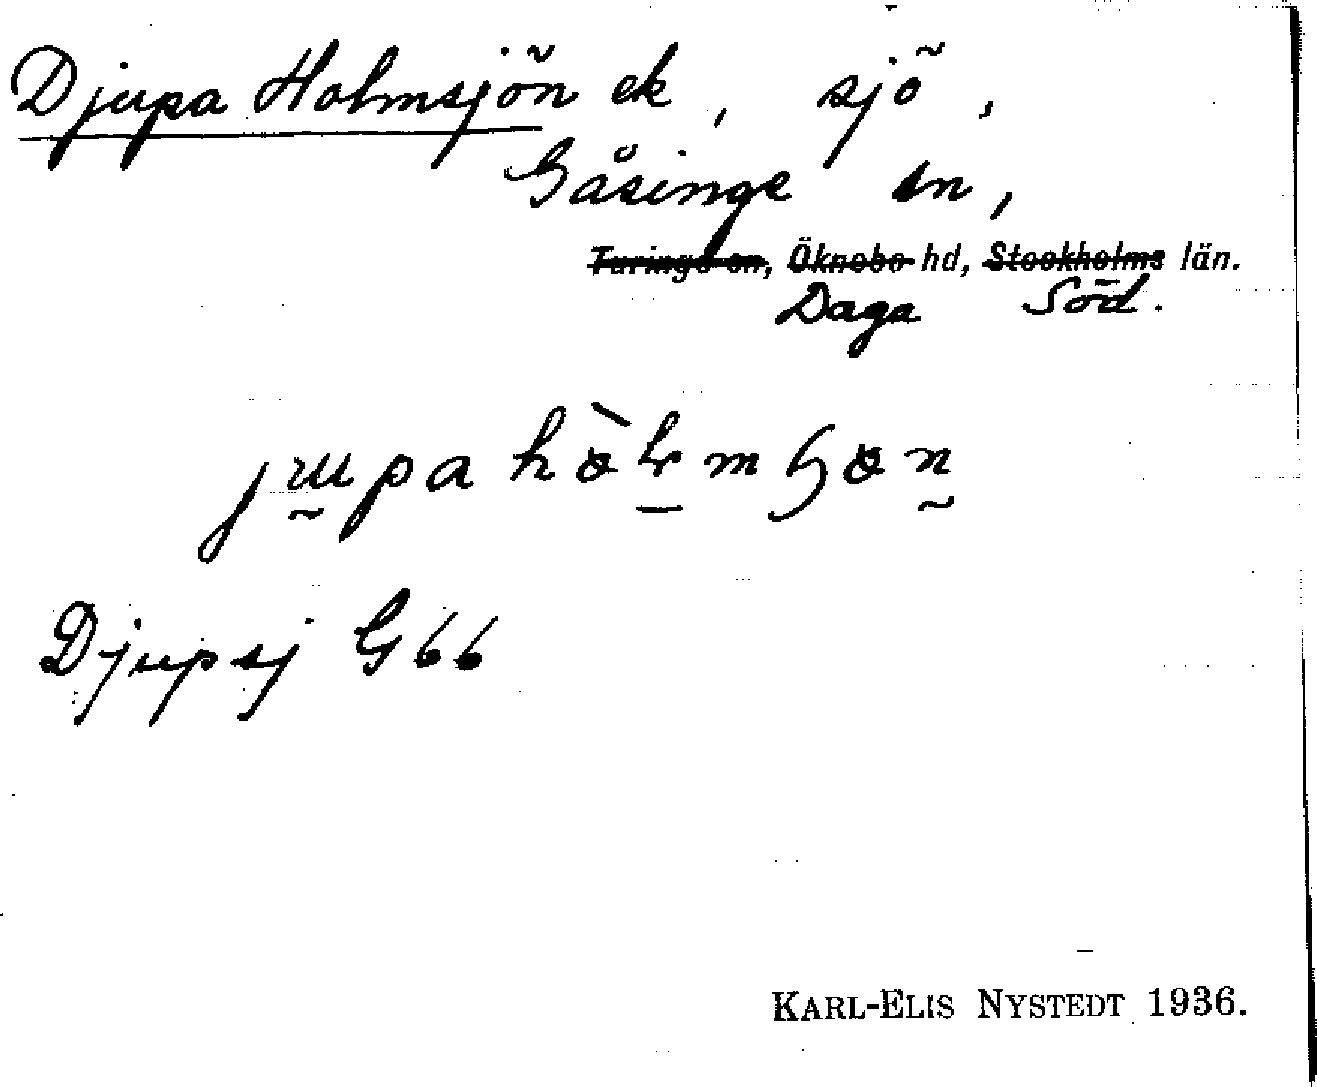 Djupa Holmsjön ek, sjö,
Gåsinge sn,
Turinge sn, Öknebo hd, Stockholms län.
Daga Söd.
Djupsj G 66
KARL-ELIS NYSTEDT 1936.